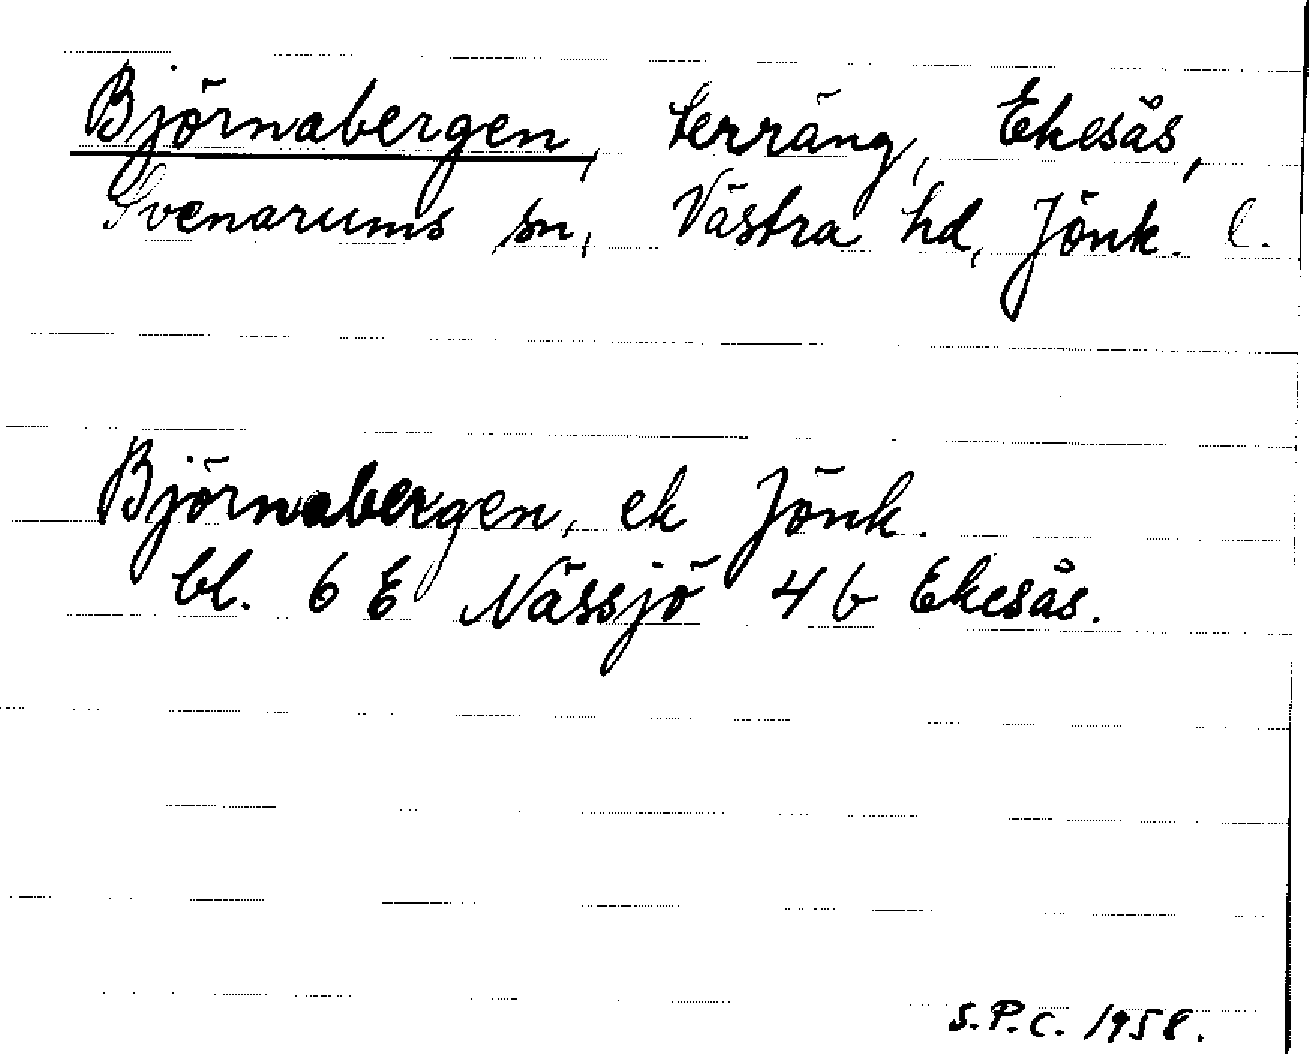 Björnabergen, terräng, Ekesås,
Svenarums sn, Västra hd, Jönk. l.
Björnabergen, ek Jönk.
bl. 6 E Nässjö 4 b Ekesås.
S.P.C. 1958.